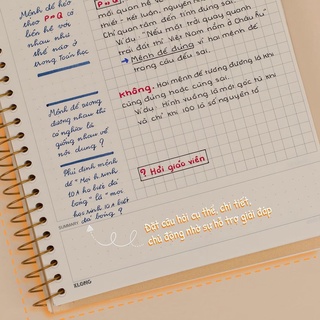 Mệnh đề kéo
theo P=>Q có
liên hệ với
nhau như
thế nào ở
trong Toán học
Mệnh đề tương
đương nhau thì
có nghĩa là
giống nhau về
nội dung ?
Phủ định mệnh
đề "Mọi h.sinh
10A ko biết đá
bóng" là "mọi
học sinh 10A biết
đá bóng ?
P=>Q
mối quan hệ
thiết - kết luận, nguyên nhân
Chỉ quan tâm đến tính đúng sai.
Ví dụ: "Nếu mặt trời quay quanh
trái đất thì Việt Nam nằm ở Châu Âu"
→ Mệnh đề đúng vì hai mệnh đề
trong câu đều sai.
Không. Hai mệnh đề tương đương là khi
cùng đúng hoặc cùng sai.
Ví dụ: Hình vuông là một góc tù khi
và chỉ khi 100 là số nguyên tố
? Hỏi giáo viên
SUMMARY
Đặt câu hỏi cụ thể, chi tiết,
chủ động nhờ sự hỗ trợ giải đáp
KLONG